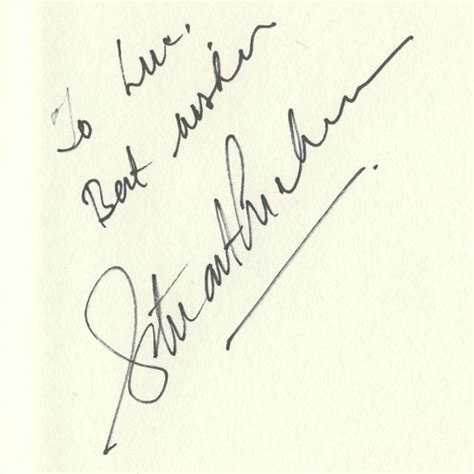 To Luc.
Best wishes
Stuart